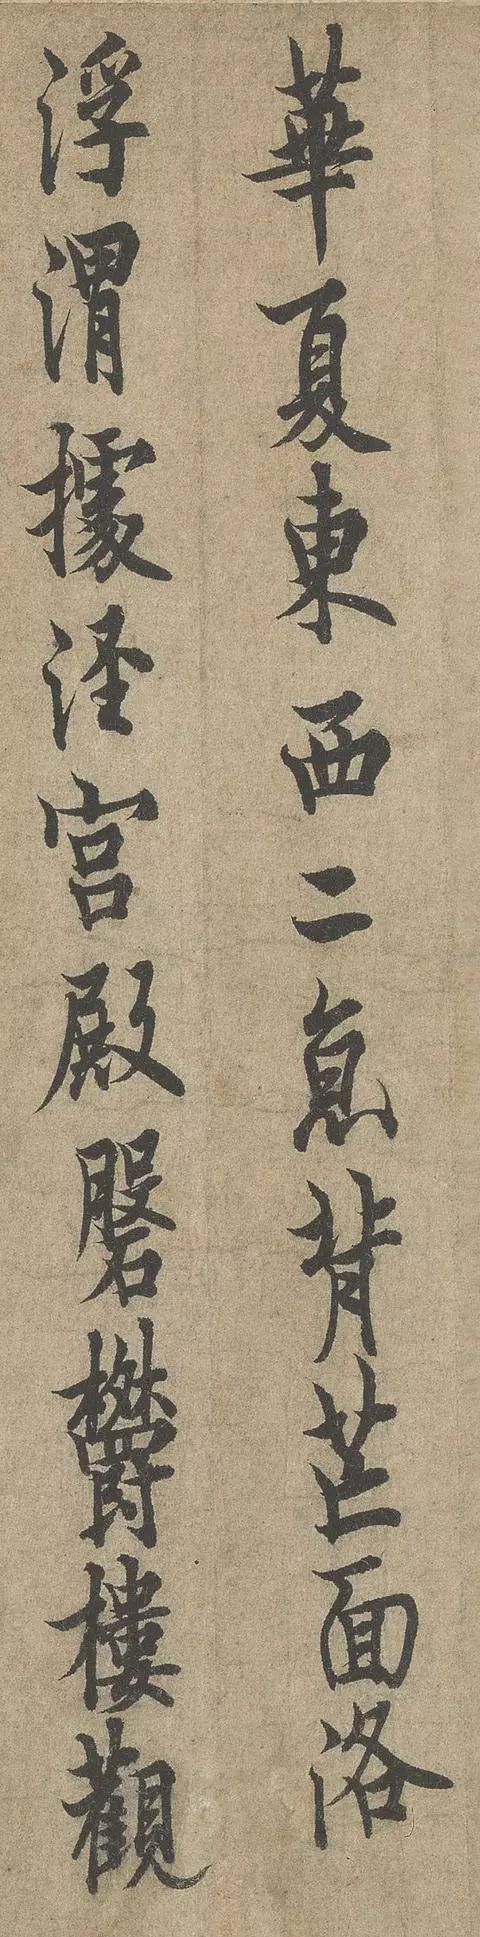 華夏東西二京背芒面洛
浮渭據涇宮殿磐鬱樓觀